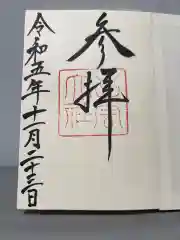 参拝
令和五年十一月二十三日